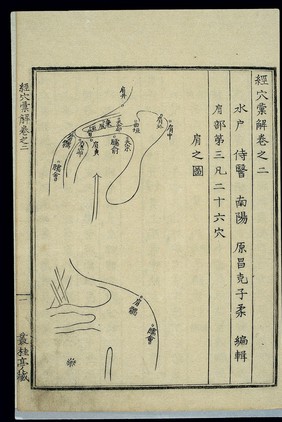 經穴彙解卷之二
水戶 侍醫 南陽 原昌克子柔 編輯
肩部第三凡二十六穴
肩之圖
肩井
天宗
曲垣
肩外
肩中
肩貞
臑俞
臑會
肩髃
臑會
經穴彙解卷之二
一
叢桂亭藏